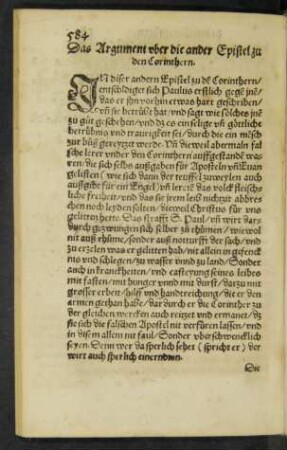 584
Das Argument vber die ander Epistel zu
den Corinthern.
IN diser andern Epistel zu dē Corinthern/
entschldiget sich Paulus erstlich gegē jnē/
das er jhn vorhin etwas hart geschriben/
vñ sie betrübt hat/ vnd sagt wie solches jnē
zu gůt geschehen/ vnd dz es ein selige vñ götliche
betrübnis vnd traurigkeit sei/ durch die ein mēsch
zur bůß gereytzt werde. Vñ dieweil abermaln fal
sche lerer vnder den Corinthern auffgestanden wa
ren/ die sich selbs außgaben für Aposteln vñ Euan
gelisten (wie sich dann der teuffel zuweylen auch
außgibt für ein Engel) vñ lerten das volck fleischs
liche freiheit/ vnd das sie jrem leib nichts abbre
chen noch leyden solten/ dieweil Christus für vns
gelitten hett. Das strafft S. Paul/ vñ wirt dar-
durch gezwungen sich selber zu rhümen/ wiewol
nit auß rhůme/ sonder auß notturfft der sach/ vnd
zu erzelen was er gelitten hab/ nit allein in gefenck
nis vnd schlegen/ zu wasser vnnd zu land/ Sonder
auch in kranckheiten/ vnd casteyung seines leibes
mit fasten/ mit hunger vnnd mit durst/ darzu mit
grosser erbeyt/ hilff vnd handtreichung/ die er den
armen gethan habe/ dardurch er die Corinther zu
der gleichen wercken auch reitzet vnd ermanet/ dz
sie sich die falschen Apostel nit verfüren lassen/ vnd
in disem allem nit faul/ Sonder vberschwencklich
seyen. Denn wer da sperlich sehet (spricht er) der
wirt auch sperlich einerndten.
Die